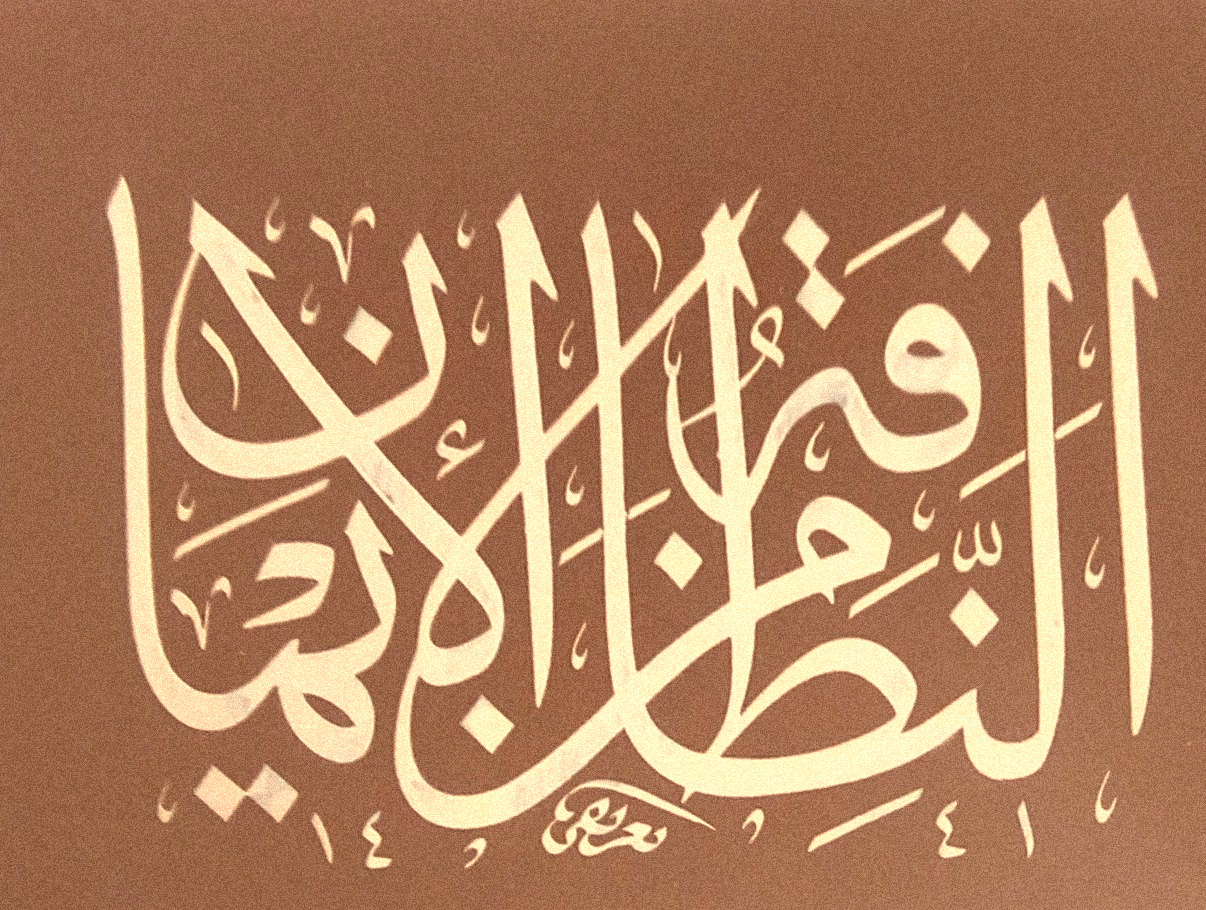 النَّظَافَةُ مِنَ الْإِيمَانِ
١٤ ٤١